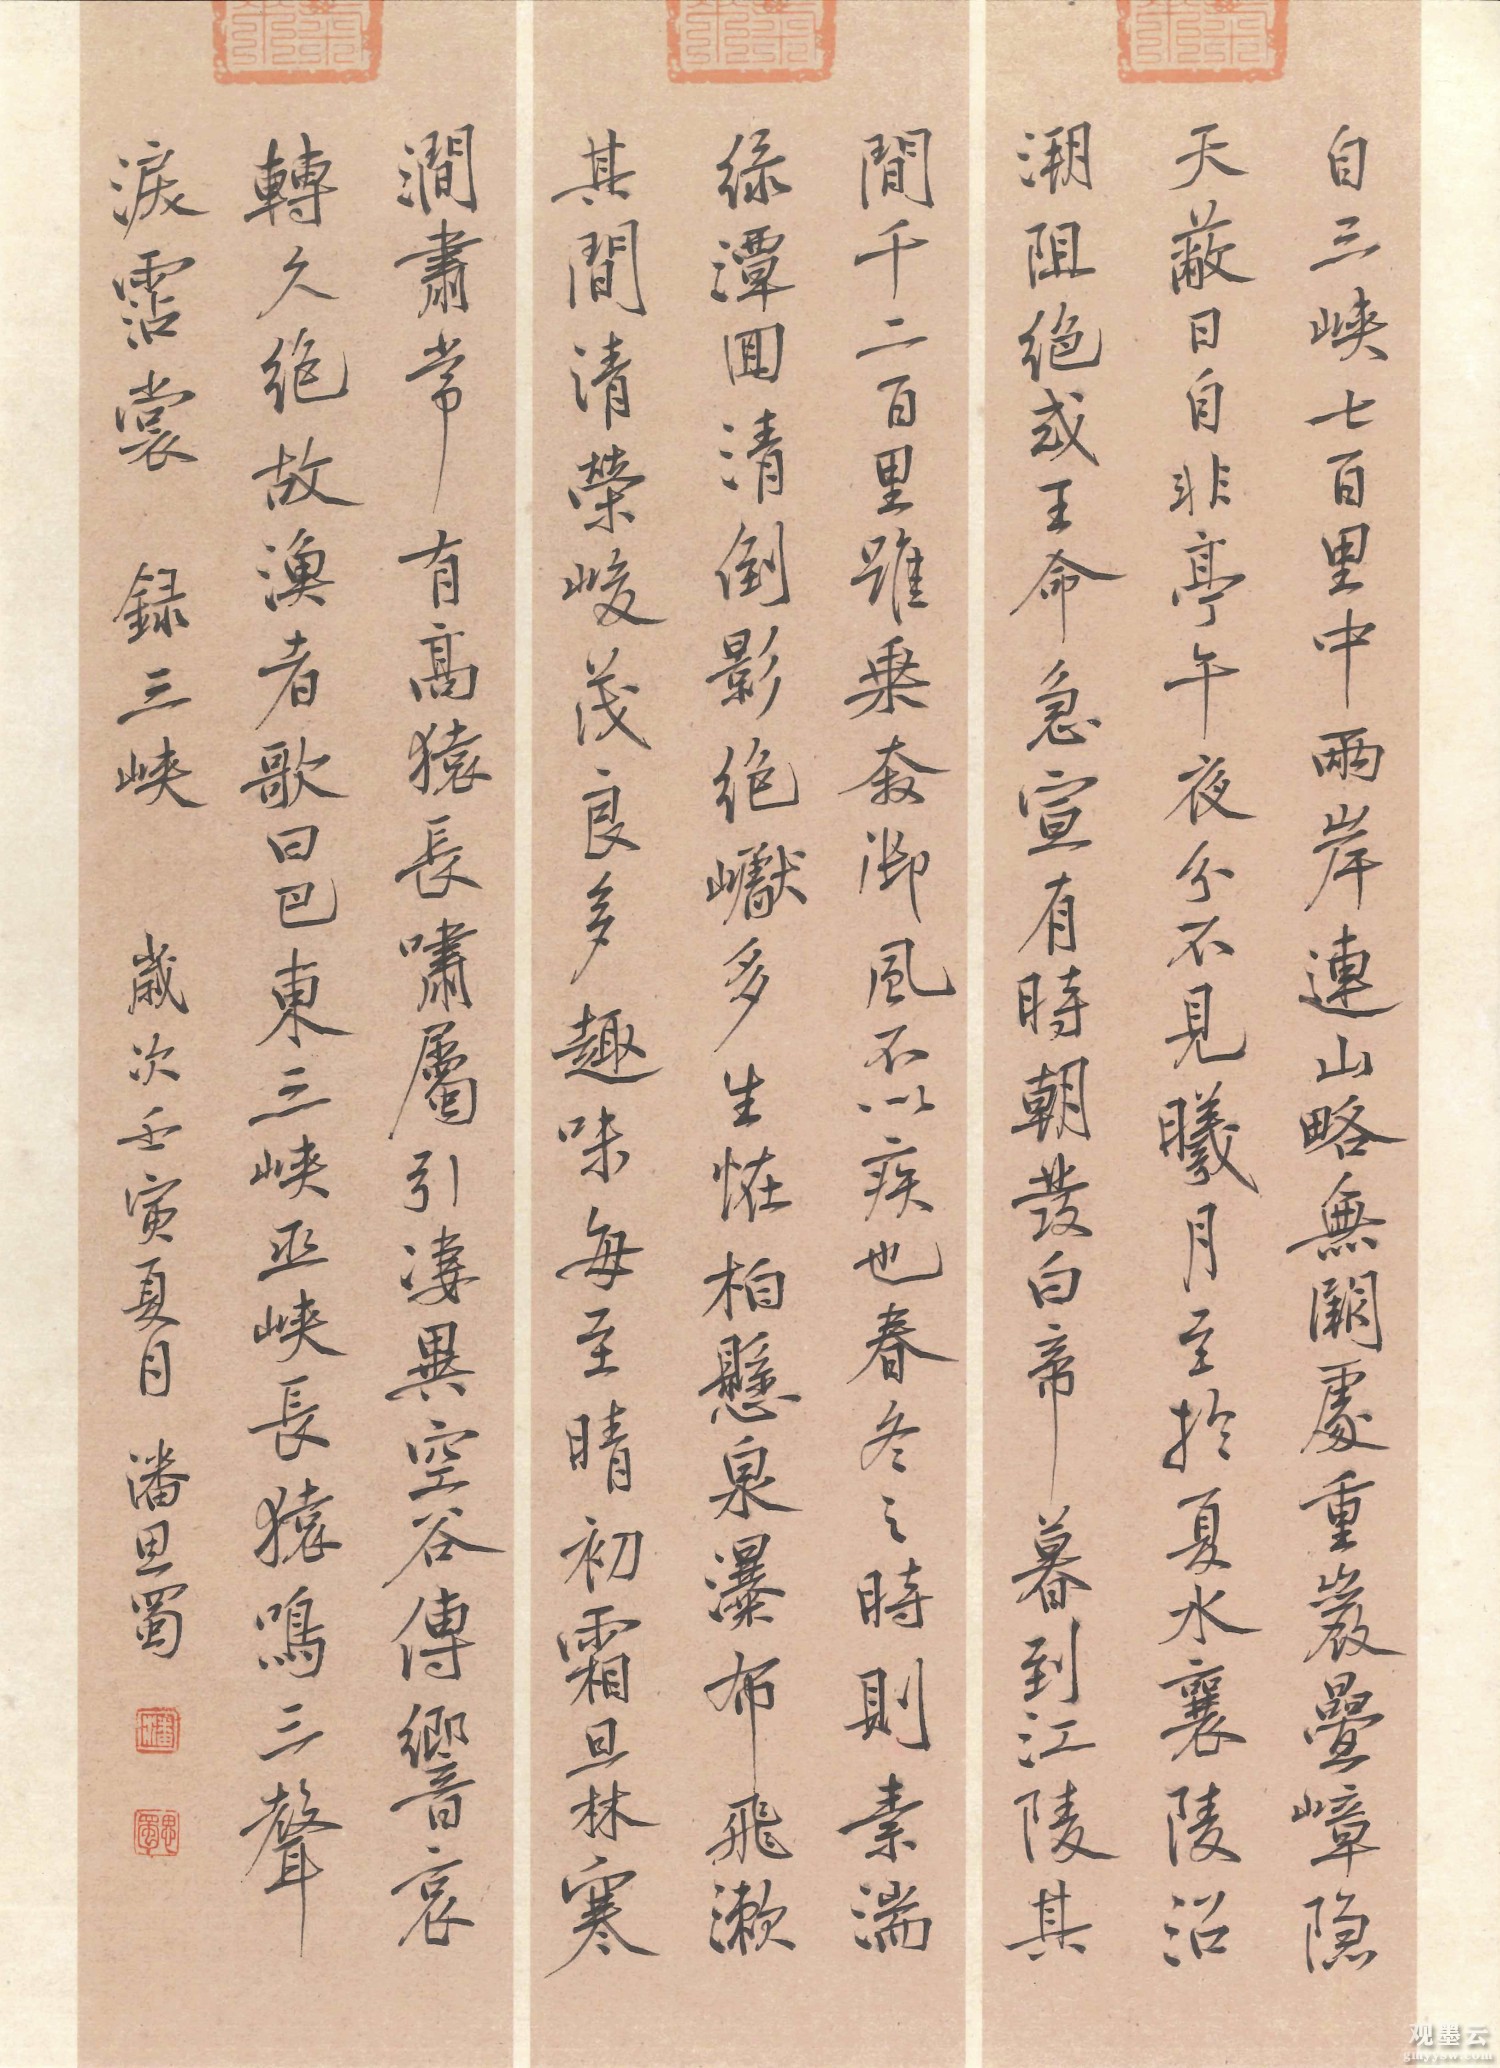 自三峽七百里中兩岸連山略無闕處重巖疊嶂隐
天蔽日自非亭午夜分不見曦月至於夏水襄陵沿
溯阻绝或王命急宣有時朝發白帝暮到江陵其
間千二百里雖乘奔御風不以疾也春冬之時則素湍
緑潭回清倒影绝巘多生怪柏懸泉瀑布飛漱
其間清榮峻茂良多趣味每至晴初霜旦林寒
澗肅常有高猿長嘯屬引凄異空谷傳響哀
轉久绝故漁者歌曰巴東三峽巫峽長猿鳴三聲
淚霑裳 録三峽 歲次壬寅夏月 潘思蜀
观墨云